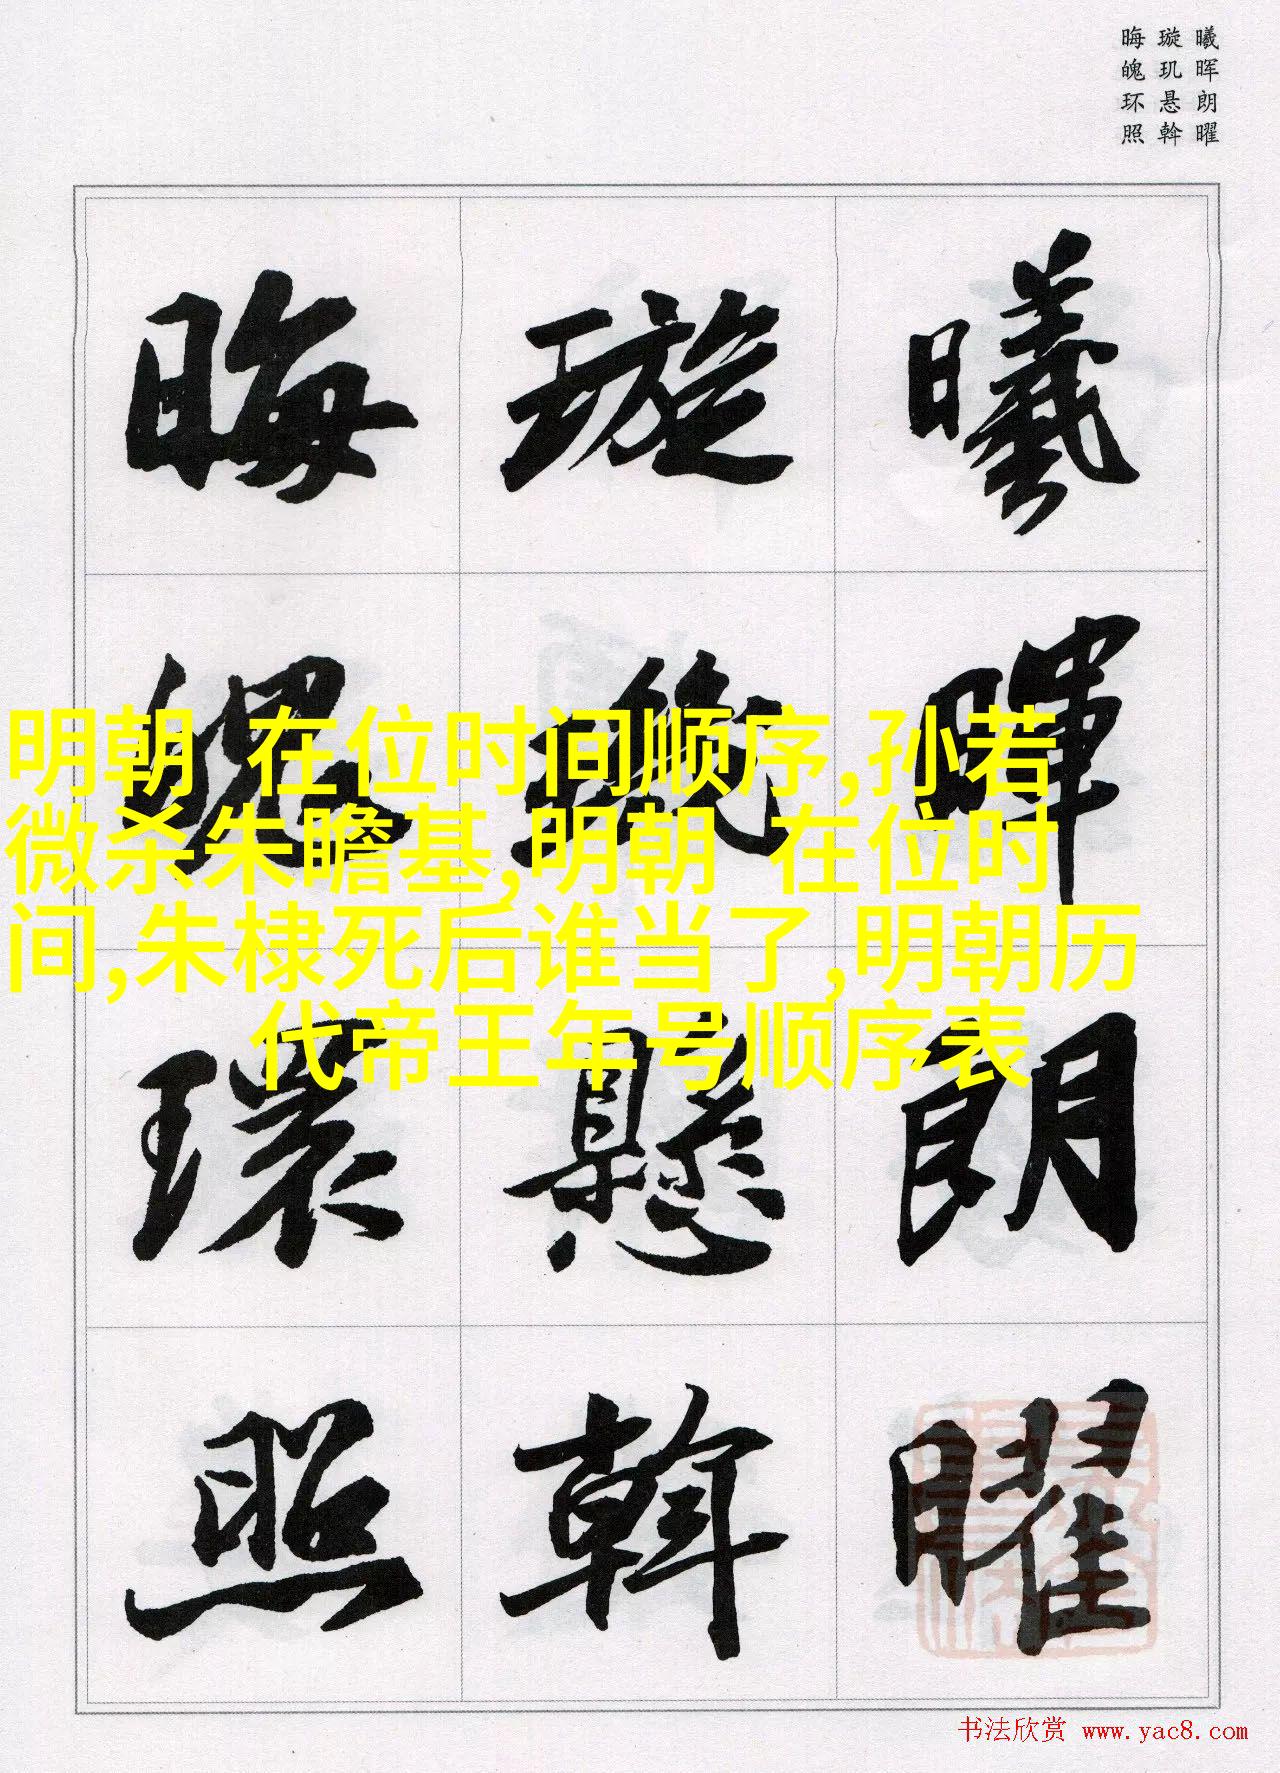 曦晖朗曜
璇玑悬斡
晦魄环照
曦暉朗曜
璇璣懸斡
晦魄環照
明朝 在位时间顺序,孙若
微杀朱瞻基,明朝 在位时
间,朱棣死后谁当了,明朝历
代帝王年号顺序表
书法欣赏 www.yac8.com